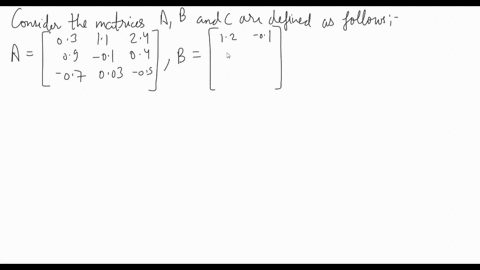 Consider the matrices A, B and C are defined as follows;-
A = [0.3 1.1 2.4
0.9 -0.1 0.4
-0.7 0.03 -0.5] , B = [1.2 -0.1]